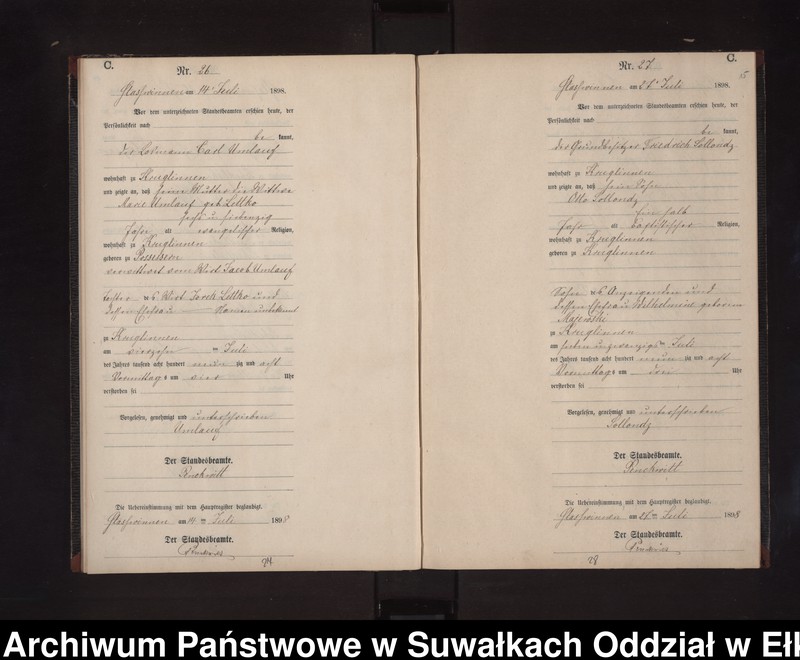 C.
Nr. 26
am 14t Juli 1898.
Vor dem unterzeichneten Standesbeamten erschien heute, der
Persönlichkeit nach
be kannt,
der Losmann Carl Umlauf
wohnhaft zu Kruglinnen
und zeigte an, daß seine Mutter die Wittwe
Marie Umlauf geb
sechs u siebenzig
Jahre alt evangelischer Religion,
wohnhaft zu Kruglinnen
geboren zu Possessern
vom Wirt Jacob Umlauf
Tochter des Wirt und
dessen Ehefrau Namen unbekannt
zu Kruglinnen
am vierzehn ten Juli
des Jahres tausend acht hundert neun zig und acht
Vormittags um vier Uhr
verstorben sei
Vorgelesen, genehmigt und unterschrieben
Umlauf
Der Standesbeamte.
Die Uebereinstimmung mit dem Hauptregister beglaubigt.
am 14 ten Juli 1898
Der Standesbeamte.
C.
Nr. 27.
am 27t Juli 1898.
Vor dem unterzeichneten Standesbeamten erschien heute, der
Persönlichkeit nach
be kannt,
der Grundbesitzer Friedrich
wohnhaft zu Kruglinnen
und zeigte an, daß sein Sohn
Otto
Ein halb
Jahr alt baptistischer Religion,
wohnhaft zu Kruglinnen
geboren zu Kruglinnen
Sohn des Anzeigenden und
dessen Ehefrau Wilhelmine geborene
Majewski
zu Kruglinnen
am sieben und zwanzigs ten Juli
des Jahres tausend acht hundert neun zig und acht
Vormittags um drei Uhr
verstorben sei
Vorgelesen, genehmigt und unterschrieben
Der Standesbeamte.
Die Uebereinstimmung mit dem Hauptregister beglaubigt.
am 27 ten Juli 1898
Der Standesbeamte.
Archiwum Państwowe w Suwałkach Oddział w Ełk